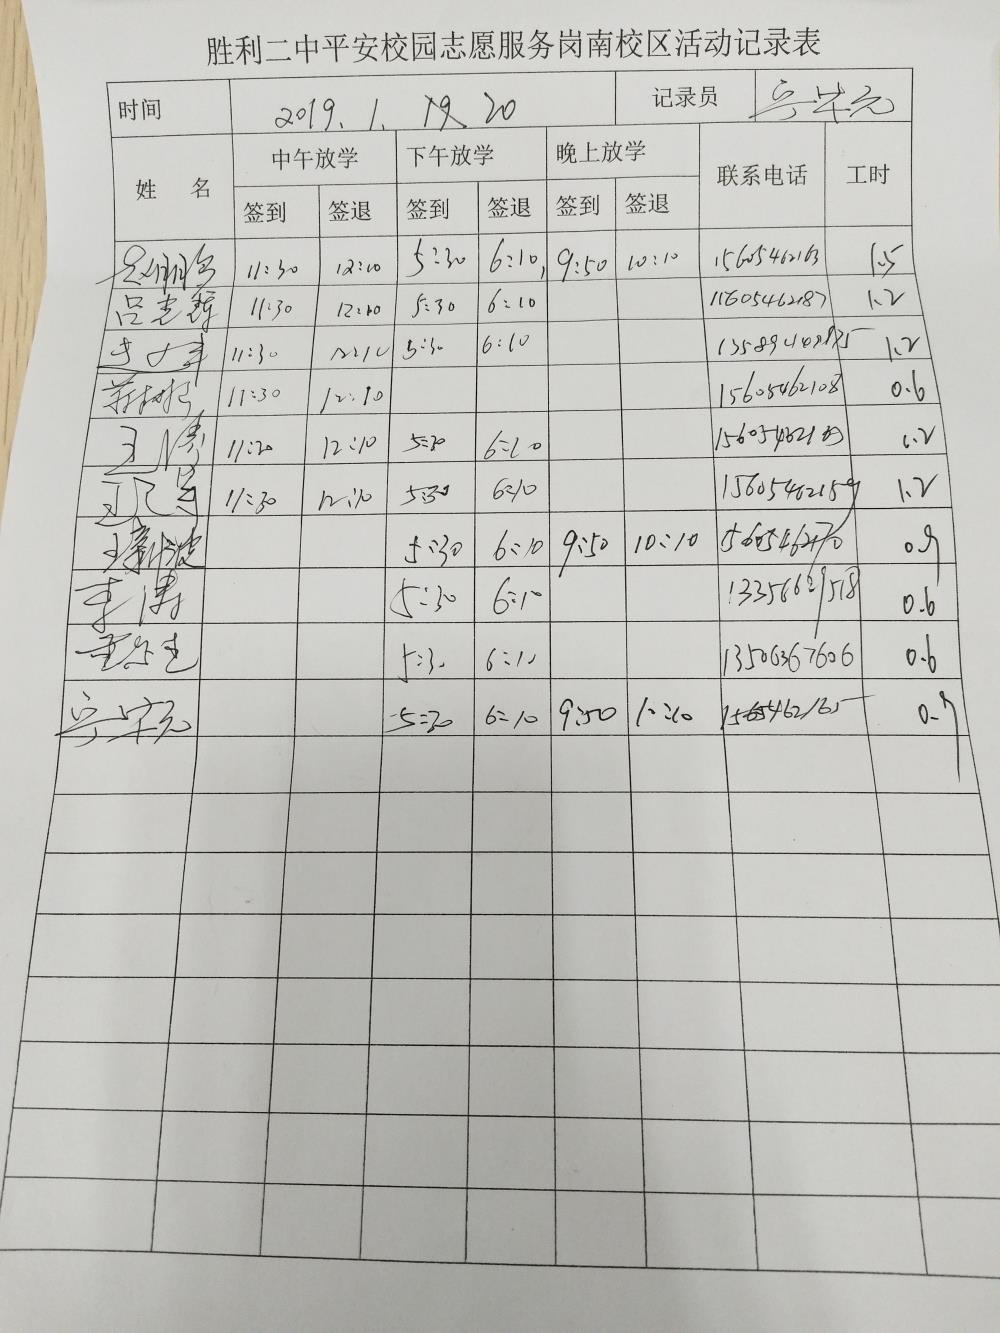 胜利二中平安校园志愿服务岗南校区活动记录表
时间 2019.1. 20 记录员
姓 名 中午放学 下午放学 晚上放学 联系电话 工时
签到 签退 签到 签退 签到 签退
11:30 12:10 5:30 6:10 9:50 10:10 15605462163 1.5
11:30 12:10 5:30 6:10 15605462187 1.2
11:30 12:10 5:30 6:10 1.2
11:30 12:10 15605462108 0.6
王涛 12:10 6:10 1.2
11:30 12:10 5:30 6:10 15605462159 1.2
5:30 6:10 9:50 10:10 0.9
李涛 5:30 6:10 13356629518 0.6
5:30 6:10 13506367606 0.6
5:30 6:10 9:50 10:10 15605462165 0.9